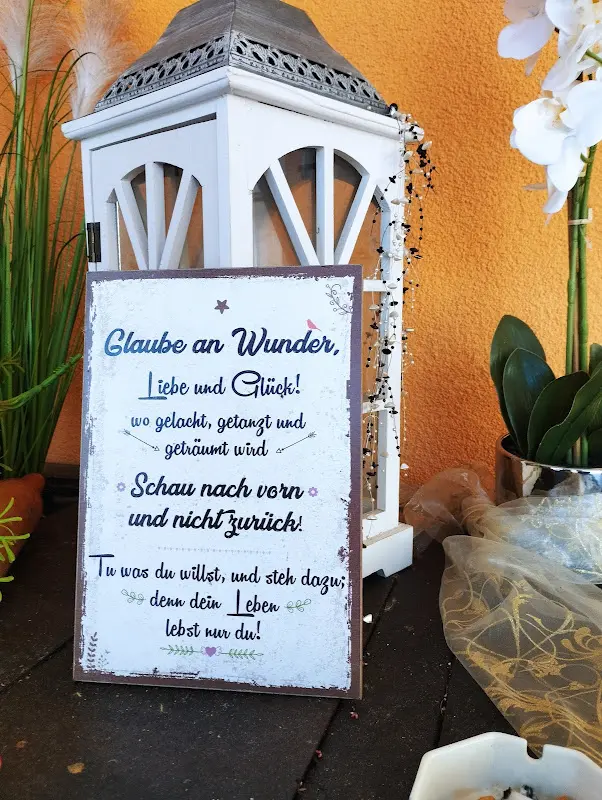 Glaube an Wunder,
Liebe und Glück!
wo gelacht, getanzt und
geträumt wird
Schau nach vorn
und nicht zurück!
Tu was du willst, und steh dazu;
denn dein Leben
lebst nur du!